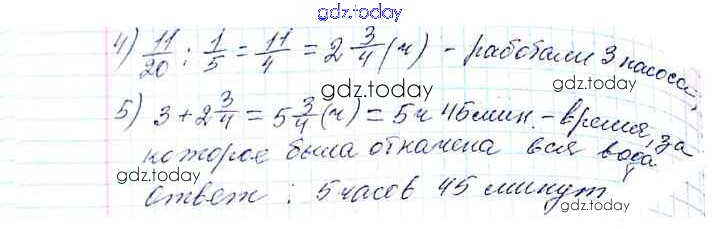 gdz.today
4) 11/20 : 1/5 = 11/4 = 2 3/4 (ч) - работали 3 насоса;
gdz.today
gdz.today
5) 3 + 2 3/4 = 5 3/4 (ч) = 5 ч 45 мин. - время, за
которое была откачена вся вода
gdz.today
ответ : 5 часов 45 минут
gdz.today